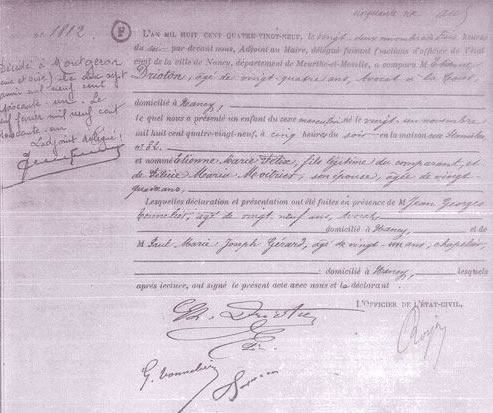 cinquante six ans
n° 1812
F
L'AN MIL HUIT CENT QUATRE-VINGT-NEUF, le vingt deux novembre à trois heures
du soir par devant nous, Adjoint au Maire, délégué faisant fonctions d'officier de l'état
civil de la ville de Nancy, département de Meurthe-et-Moselle, a comparu M Etienne
Drioton, âgé de vingt-quatre ans, avocat à la Cour,
domicilié à Nancy
le quel nous a présenté un enfant du sexe masculin né le vingt un novembre
mil huit cent quatre-vingt-neuf, à cinq heures du soir en la maison
n° 52.
et nommé Etienne Marie Félix, fils légitime du comparant, et
de Félicie Maria Moitrier, son épouse, âgée de vingt-
ans,
Lesquelles déclaration et présentation ont été faites en présence de M Jean Georges
âgé de vingt neuf ans, avocat
domicilié à Nancy, et de
M Paul Marie Joseph Gérard, âgé de vingt-un ans, chapelier,
domicilié à Nancy, lesquels
après lecture, ont signé le présent acte avec nous et le déclarant.
L'OFFICIER DE L'ÉTAT-CIVIL,
Décédé à Montgeron
(Seine et Oise) le dix sept
janvier mil neuf cent
soixante un. Le
février mil neuf cent
soixante un
L'adjoint délégué